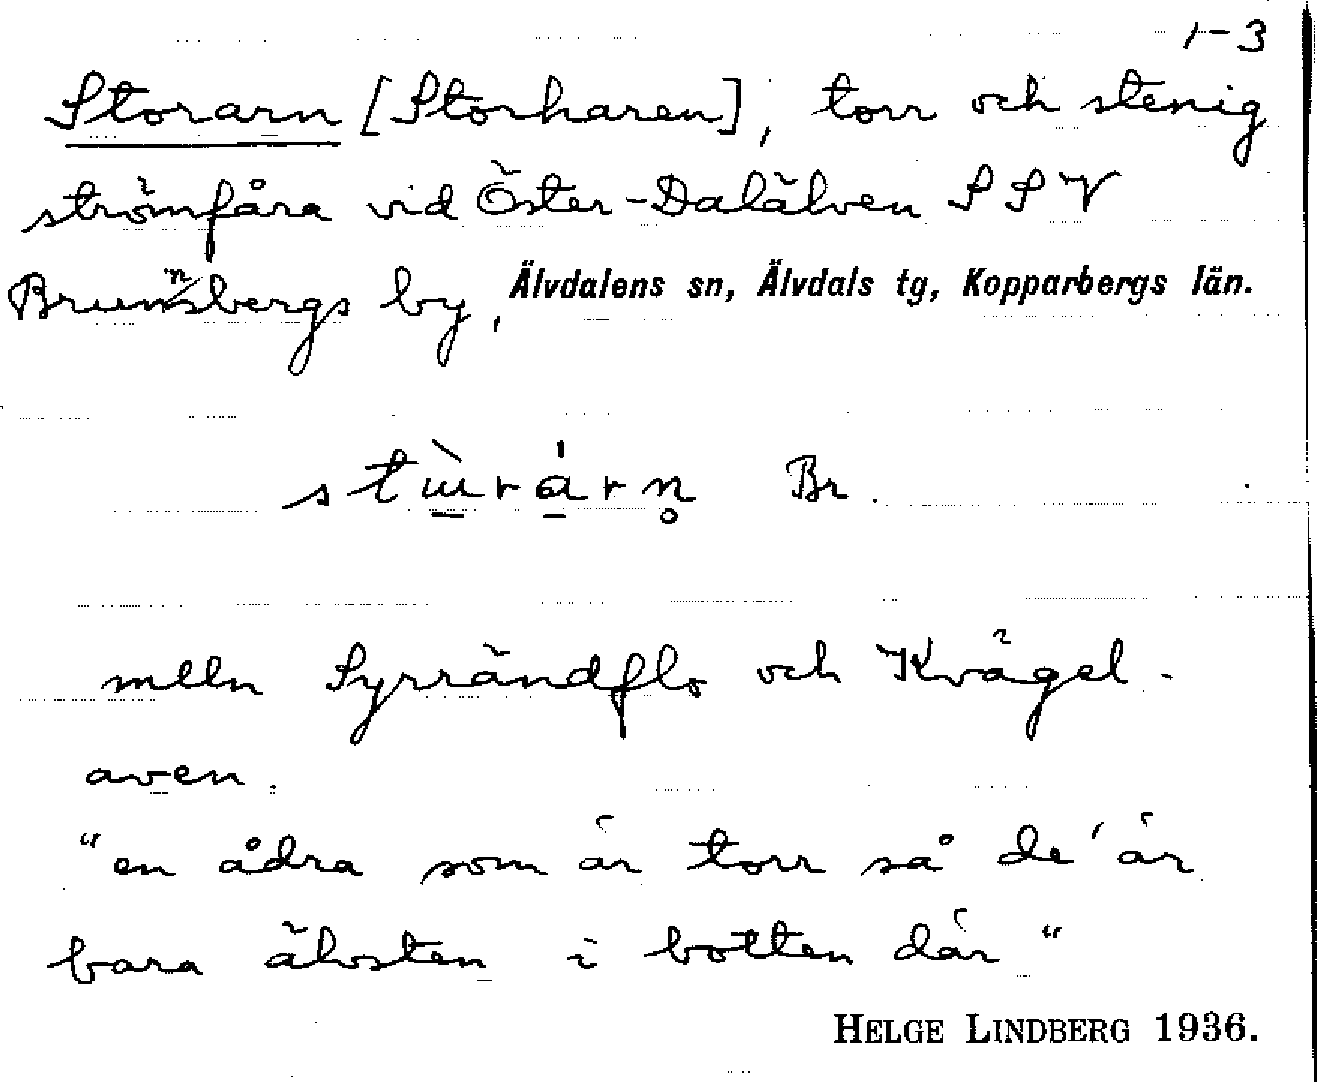 1-3
Storarn [Storharen], torr och stenig
strömfåra vid Öster-Dalälven SSV
Brunnsbergs by, Älvdalens sn, Älvdals tg, Kopparbergs län.
stɯ̀rárn̥ Br.
mlln Syrrändflo och Kvägel-
aven.
"en ådra som är torr så de' är
bara älvsten i botten där"
HELGE LINDBERG 1936.